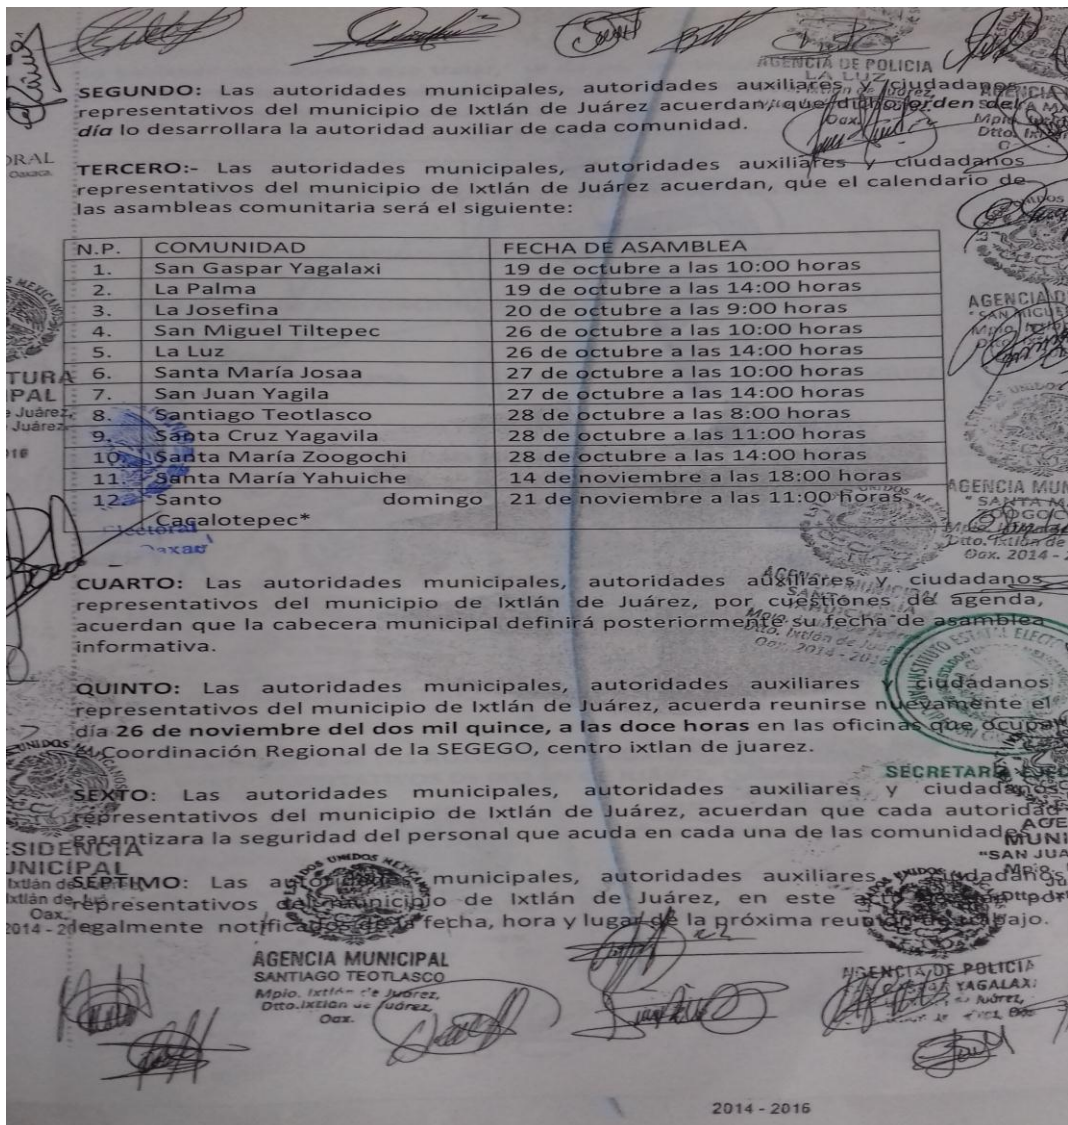 AGENCIA DE POLICIA
LA LUZ
SEGUNDO: Las autoridades municipales, autoridades auxiliares y ciudadanos
representativos del municipio de Ixtlán de Juárez acuerdan, que dicho orden del
día lo desarrollara la autoridad auxiliar de cada comunidad.
TERCERO:- Las autoridades municipales, autoridades auxiliares y ciudadanos
representativos del municipio de Ixtlán de Juárez acuerdan, que el calendario de
las asambleas comunitaria será el siguiente:
N.P. COMUNIDAD FECHA DE ASAMBLEA
1. San Gaspar Yagalaxi 19 de octubre a las 10:00 horas
2. La Palma 19 de octubre a las 14:00 horas
3. La Josefina 20 de octubre a las 9:00 horas
4. San Miguel Tiltepec 26 de octubre a las 10:00 horas
5. La Luz 26 de octubre a las 14:00 horas
6. Santa María Josaa 27 de octubre a las 10:00 horas
7. San Juan Yagila 27 de octubre a las 14:00 horas
8. Santiago Teotlasco 28 de octubre a las 8:00 horas
9. Santa Cruz Yagavila 28 de octubre a las 11:00 horas
10. Santa María Zoogochi 28 de octubre a las 14:00 horas
11. Santa María Yahuiche 14 de noviembre a las 18:00 horas
12. Santo domingo 21 de noviembre a las 11:00 horas
Cacalotepec*
CUARTO: Las autoridades municipales, autoridades auxiliares y ciudadanos
representativos del municipio de Ixtlán de Juárez, por cuestiones de agenda,
acuerdan que la cabecera municipal definirá posteriormente su fecha de asamblea
informativa.
QUINTO: Las autoridades municipales, autoridades auxiliares y ciudadanos
representativos del municipio de Ixtlán de Juárez, acuerda reunirse nuevamente el
día 26 de noviembre del dos mil quince, a las doce horas en las oficinas que ocupa
Coordinación Regional de la SEGEGO, centro ixtlan de juarez.
SEXTO: Las autoridades municipales, autoridades auxiliares y ciudadanos
representativos del municipio de Ixtlán de Juárez, acuerdan que cada autoridad
garantizara la seguridad del personal que acuda en cada una de las comunidades.
SEPTIMO: Las autoridades municipales, autoridades auxiliares y ciudadanos
representativos del municipio de Ixtlán de Juárez, en este acto por
legalmente notificados de la fecha, hora y lugar de la próxima reunión de trabajo.
AGENCIA MUNICIPAL
SANTIAGO TEOTLASCO
Mpio. Ixtlán de Juárez,
Dtto. Ixtlán de Juárez,
Oax.
AGENCIA DE POLICIA
YAGALAXI
2014 - 2016